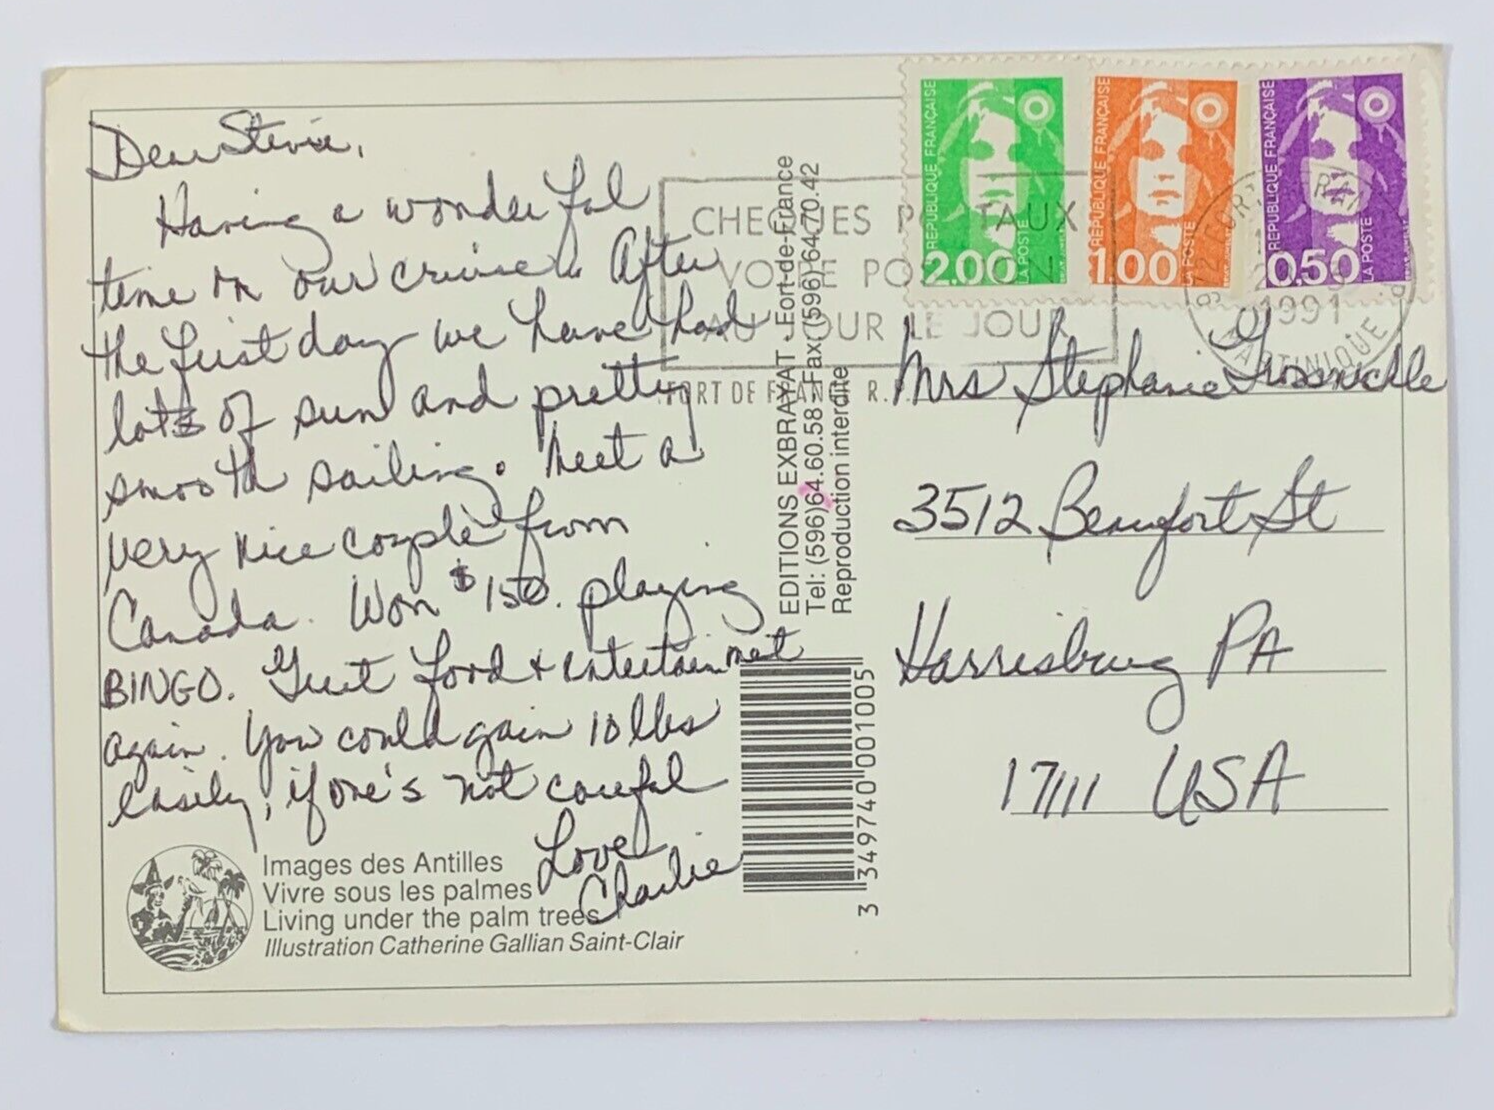 Dear Stevie,
Having a wonderful
time on our cruise. After
the first day we have had
lots of sun and pretty
smooth sailing. Meet a
very nice couple from
Canada. Won $150. playing
BINGO. Great food + entertainmet
again. You could gain 10 lbs
easily, if one's not careful
Love
Charlie
Images des Antilles
Vivre sous les palmes
Living under the palm trees
Illustration Catherine Gallian Saint-Clair
EDITIONS EXBRAYAT - Fort-de-France
Tel: (596) 64.60.58 - Fax (596) 64.70.42
Reproduction interdite
3 349740 001005
REPUBLIQUE FRANÇAISE
2.00
LA POSTE
REPUBLIQUE FRANÇAISE
1.00
LA POSTE
REPUBLIQUE FRANÇAISE
0.50
LA POSTE
CHEQUES POSTAUX
VOTRE POSITION
AU JOUR LE JOUR
FORT DE FRANCE R.P.
1991
MARTINIQUE
Mrs Stephanie
3512 Beaufort St
Harrisburg PA
17111 USA